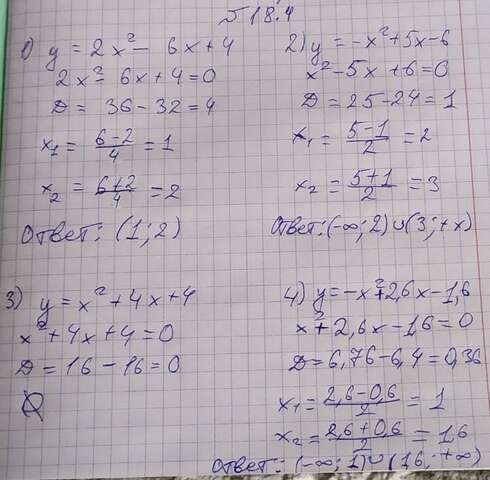 № 18.4
1) y = 2x² - 6x + 4
2x² - 6x + 4 = 0
D = 36 - 32 = 4
x₁ = (6-2)/4 = 1
x₂ = (6+2)/4 = 2
Ответ: (1; 2)
2) y = -x² + 5x - 6
x² - 5x + 6 = 0
D = 25 - 24 = 1
x₁ = (5-1)/2 = 2
x₂ = (5+1)/2 = 3
Ответ: (-∞; 2) ∪ (3; +x)
3) y = x² + 4x + 4
x² + 4x + 4 = 0
D = 16 - 16 = 0
∅
4) y = -x² + 2,6x - 1,6
x² + 2,6x - 1,6 = 0
D = 6,76 - 6,4 = 0,36
x₁ = (2,6-0,6)/2 = 1
x₂ = (2,6+0,6)/2 = 1,6
Ответ: (-∞; 1) ∪ (1,6; +∞)